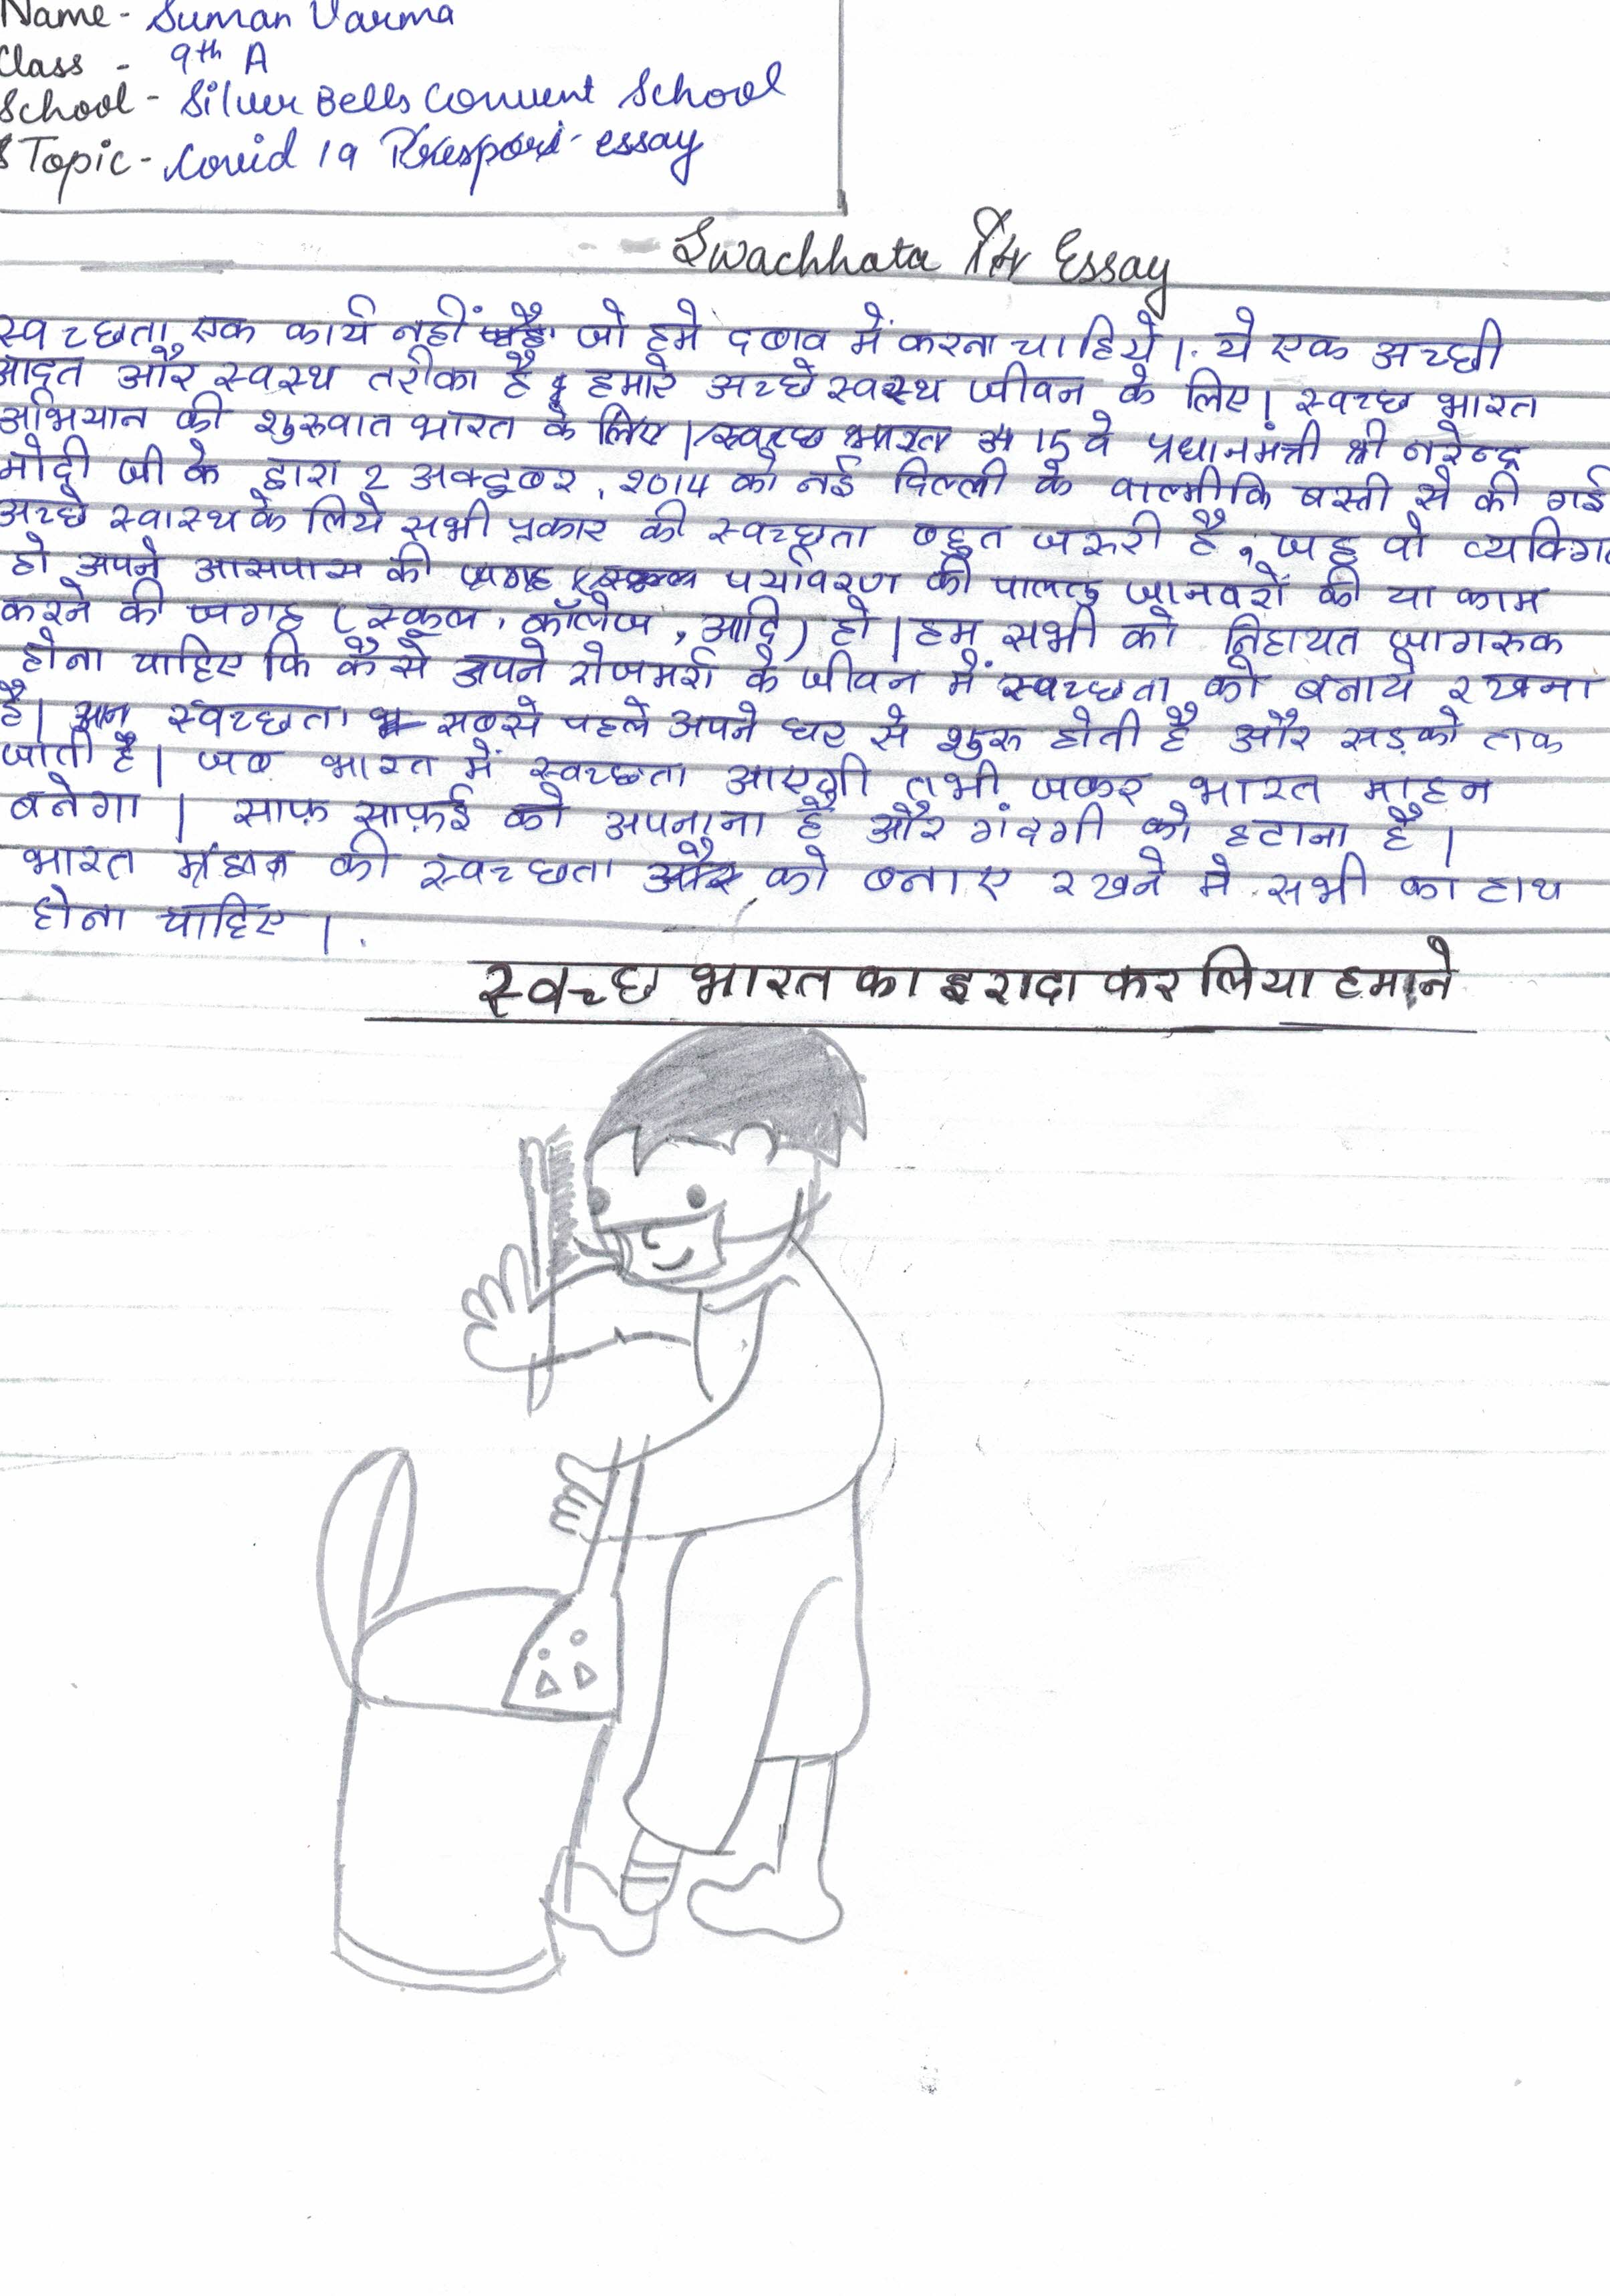 Name - Suman Varma
Class - 9th A
School - Silver Bells Convent School
Topic - Covid 19 essay
Swachhata Essay
स्वच्छता एक कार्य नहीं है जो हमे दबाव में करना चाहिये। ये एक अच्छी
आदत और स्वस्थ तरीका है हमारे अच्छे स्वस्थ जीवन के लिए। स्वच्छ भारत
अभियान की शुरुवात भारत के लिए। 15 वे प्रधानमंत्री श्री नरेन्द्र
मोदी जी के द्वारा 2 अक्टूबर, 2014 को नई दिल्ली के वाल्मीकि बस्ती से की गई
अच्छे स्वास्थ के लिये सभी प्रकार की स्वच्छता बहुत जरुरी है, जह वो
हो अपने आसपास की पर्यावरण की पालतु जानवरों की या काम
करने की जगह (स्कूल, कॉलेज, आदि) हो। हम सभी को निहायत जागरुक
होना चाहिए कि कैसे अपने रोजमर्रा के जीवन में स्वच्छता को बनाये रखना
है। स्वच्छता सबसे पहले अपने घर से शुरू होती है और सड़को तक
जाती है। जब भारत में स्वच्छता आएगी तभी जकर भारत माहन
बनेगा। साफ़ साफ़ई को अपनाना है और गंदगी को हटाना है।
भारत की स्वच्छता को बनाए रखने मे सभी का हाथ
होना चाहिए।
स्वच्छ भारत का इरादा कर लिया हमाने